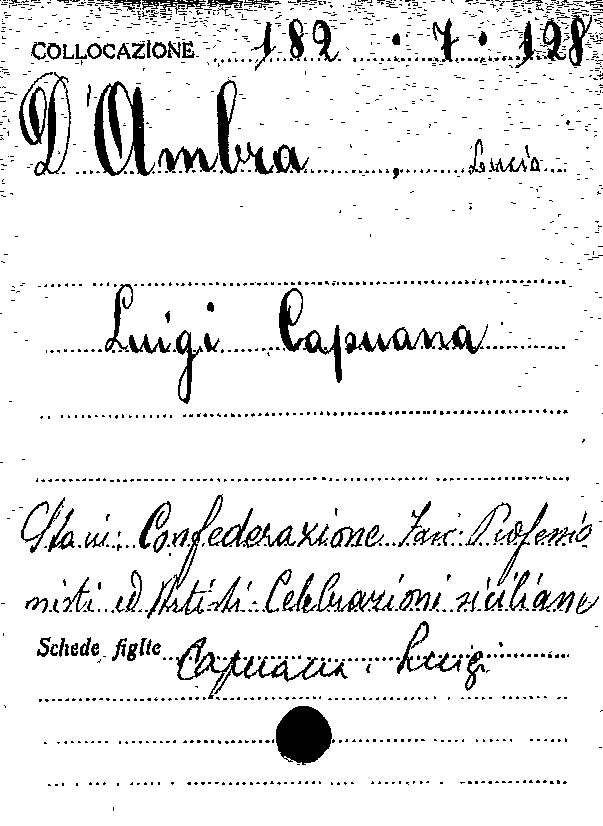 COLLOCAZIONE 182 · 7 · 128
D'Ambra, Lucio
Luigi Capuana
Confederazione Fasc. Professio
nisti ed Artisti - Celebrazioni siciliane
Schede figlie Capuana, Luigi